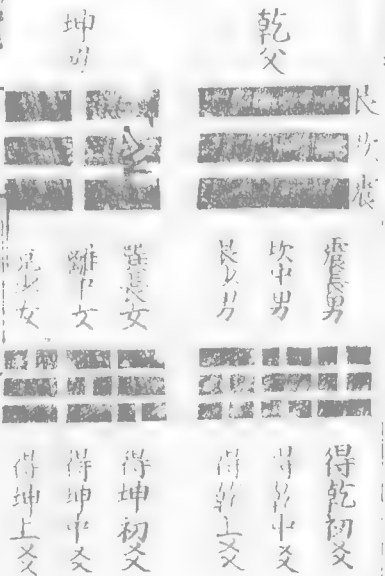 乾父
艮
坎
震
震長男
坎中男
艮少男
得乾初爻
得乾中爻
得乾上爻
坤母
巽長女
離中女
兌少女
得坤初爻
得坤中爻
得坤上爻